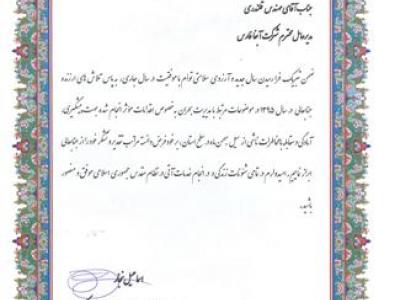 جناب آقای مهندس قلندری
مدیرعامل محترم شرکت آبفا فارس
ضمن تبریک فرارسیدن سال جدید و آرزوی سلامتی توام با موفقیت در سال جاری، به پاس تلاش های ارزنده
جنابعالی در سال ۱۳۹۵ در موضوعات مرتبط با مدیریت بحران به خصوص اقدامات مؤثر انجام شده جهت پیشگیری،
آمادگی و مقابله با مخاطرات ناشی از سیل بهمن ماه در سطح استان، بر خود فرض دانسته مراتب تقدیر و تشکر خود را از جنابعالی
ابراز نمایم. امیدوارم در تمامی شئونات زندگی و در انجام خدمات آتی در نظام مقدس جمهوری اسلامی موفق و منصور
باشید.
اسماعیل نجار